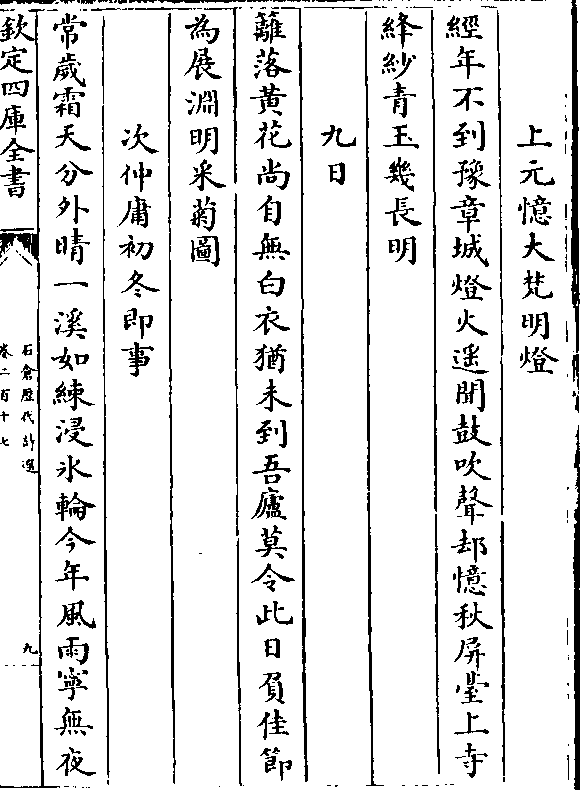 上元憶大梵明燈
經年不到豫章城燈火遥聞鼓吹聲却憶秋屏臺上寺
絳紗青玉幾長明
九日
籬落黄花尚自無白衣猶未到吾廬莫令此日負佳節
為展淵明采菊圖
次仲庸初冬即事
常歲霜天分外晴一溪如練浸氷輪今年風雨寧無夜
欽定四庫全書
石倉歷代詩選
卷二百十七
九